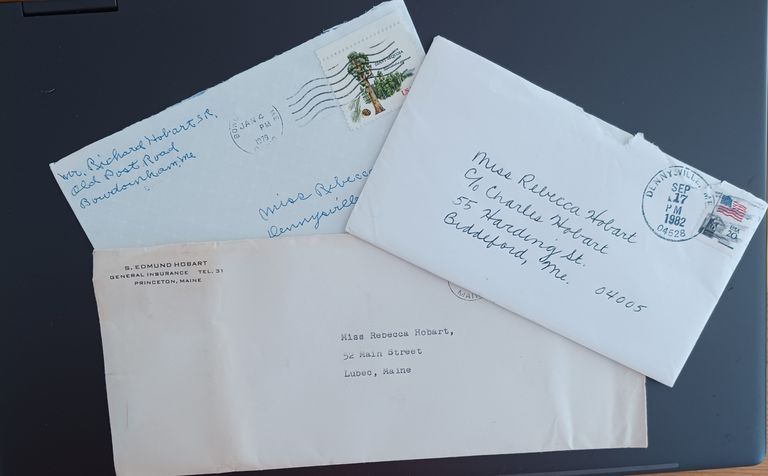 Mr. Richard Hobart SR.
Old Post Road
Bowdoinham, Me
JAN 4
PM
1979
Miss Rebecca
Dennysville
Miss Rebecca Hobart
C/o Charles Hobart
55 Harding St.
Biddeford, Me. 04005
DENNYSVILLE, ME
SEP
17
PM
1982
04628
USA
20c
S. EDMUND HOBART
GENERAL INSURANCE TEL. 31
PRINCETON, MAINE
Miss Rebecca Hobart,
52 Main Street
Lubec, Maine